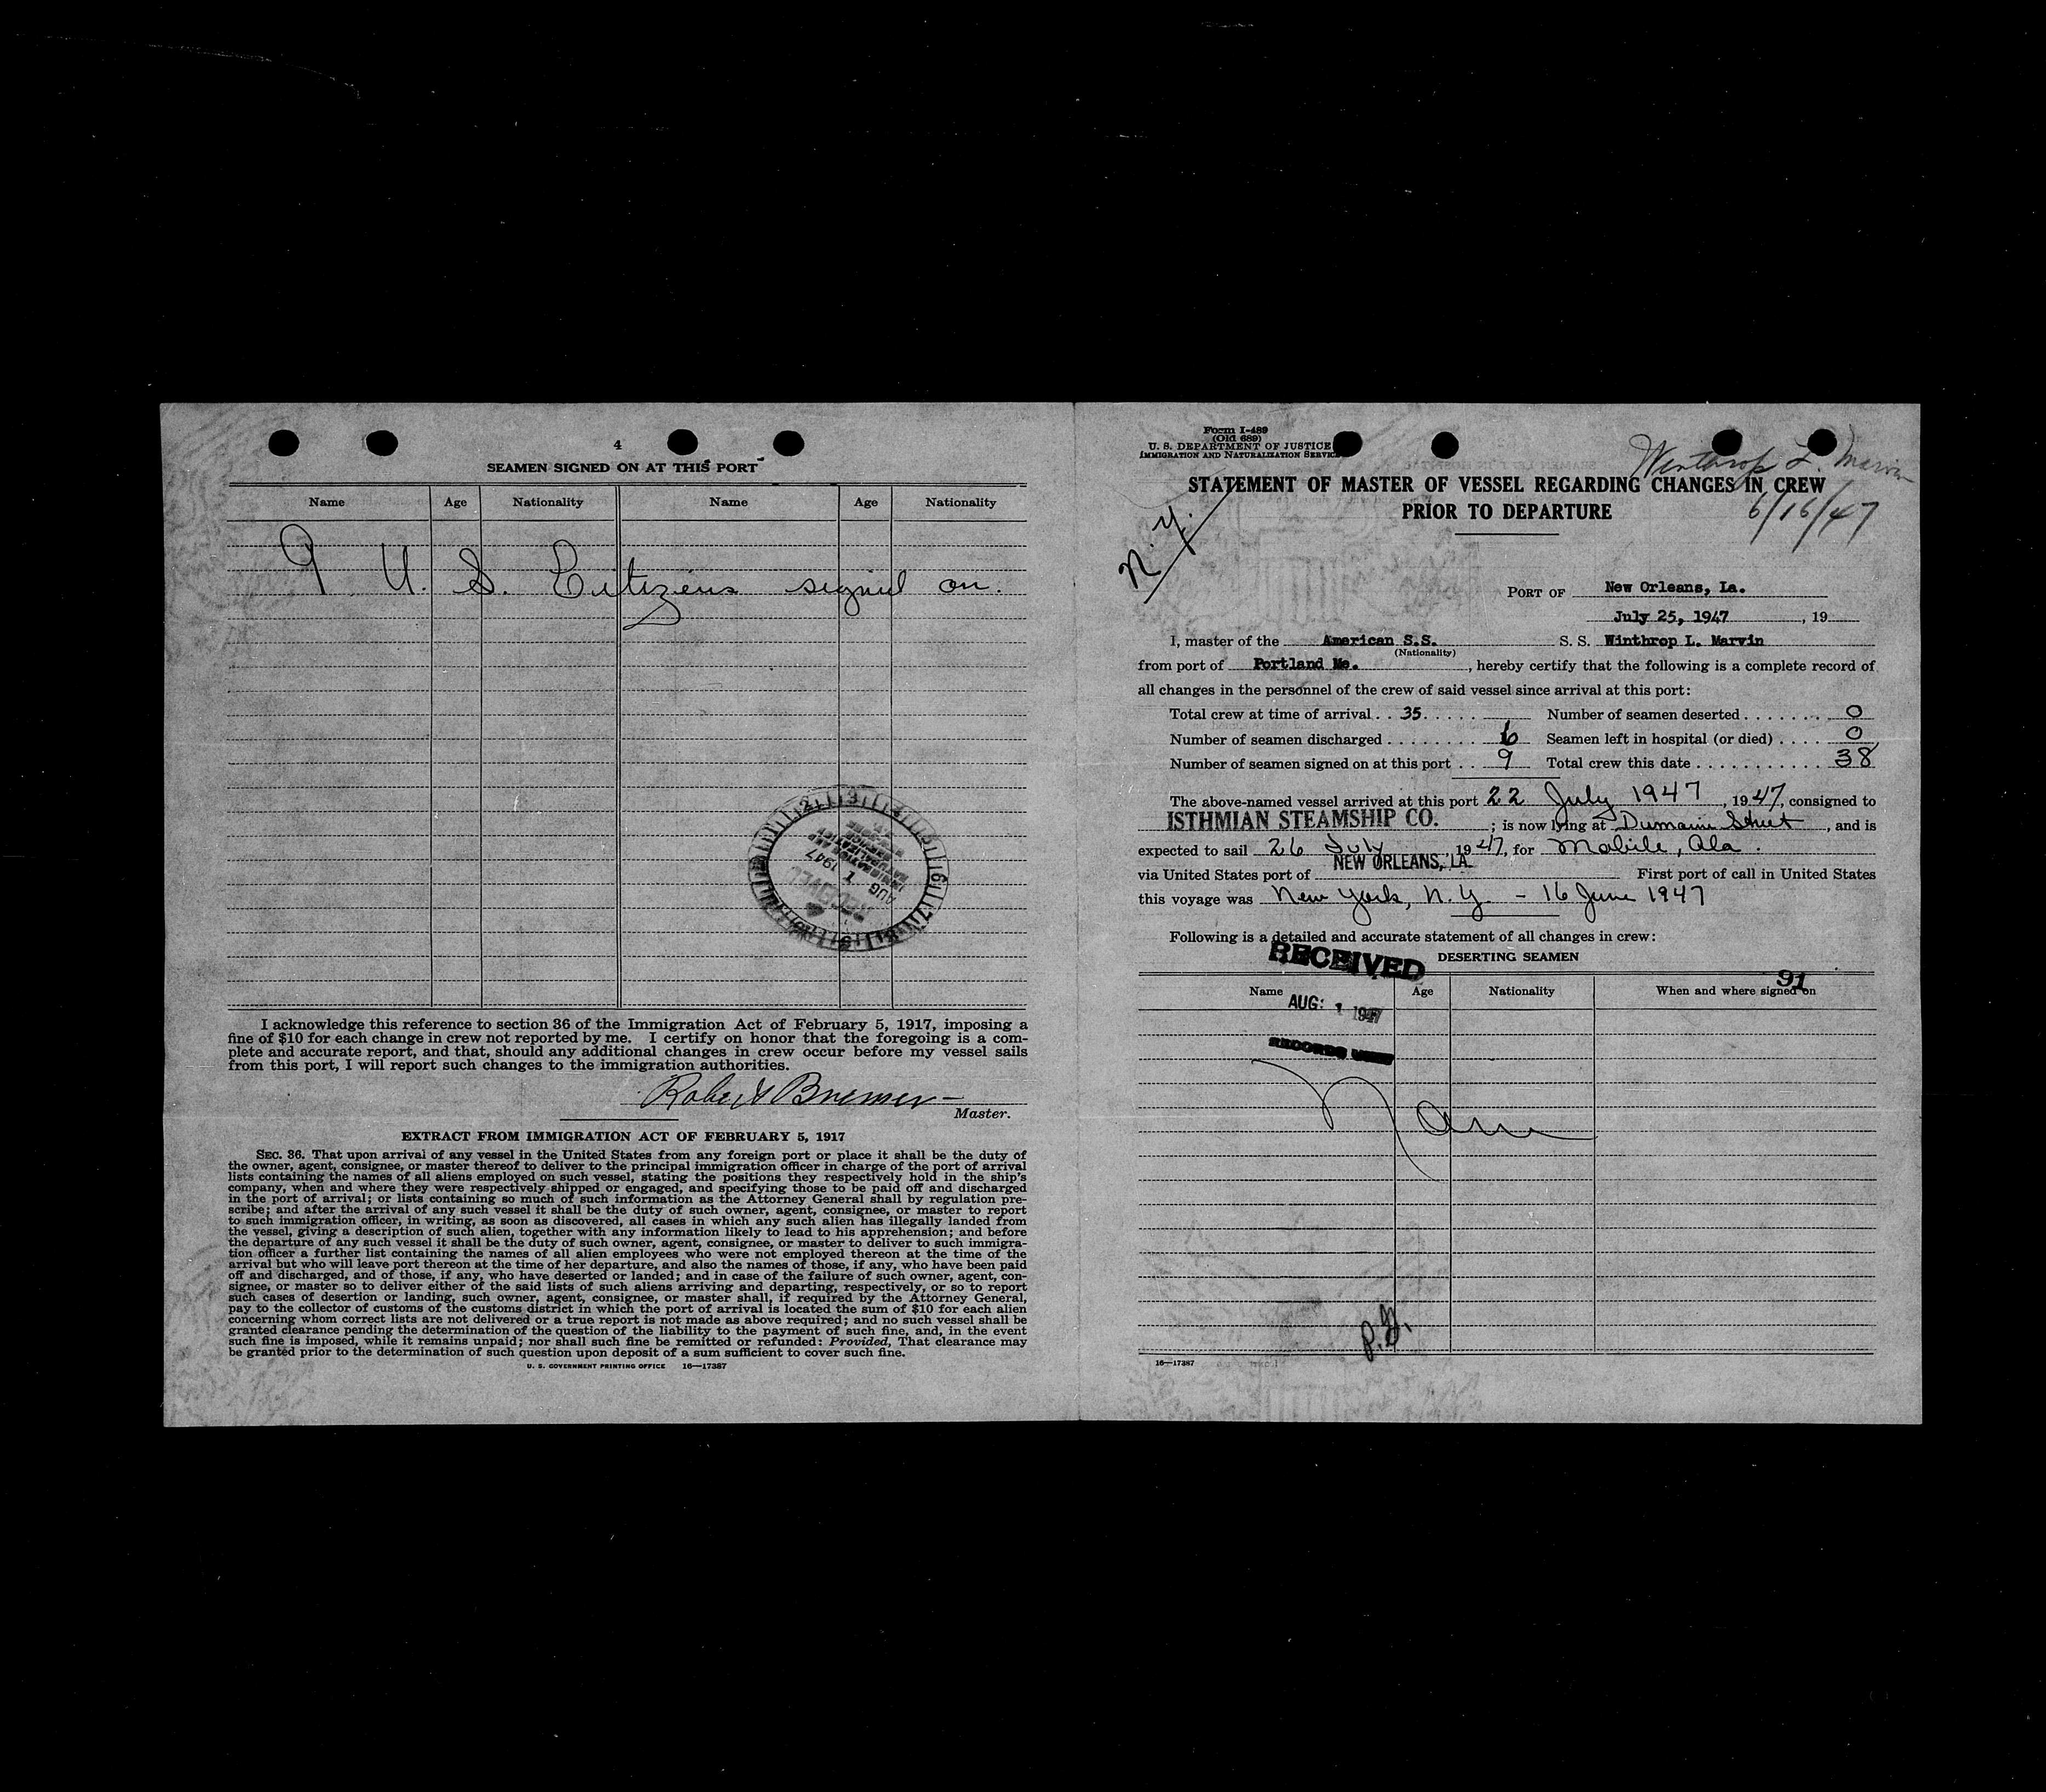 4
SEAMEN SIGNED ON AT THIS PORT
Name Age Nationality Name Age Nationality
9 U. S. Citizens signed on.
AUG 1 1947
I acknowledge this reference to section 36 of the Immigration Act of February 5, 1917, imposing a
fine of $10 for each change in crew not reported by me. I certify on honor that the foregoing is a com-
plete and accurate report, and that, should any additional changes in crew occur before my vessel sails
from this port, I will report such changes to the immigration authorities.
Robert Bremer
Master.
EXTRACT FROM IMMIGRATION ACT OF FEBRUARY 5, 1917
SEC. 36. That upon arrival of any vessel in the United States from any foreign port or place it shall be the duty of
the owner, agent, consignee, or master thereof to deliver to the principal immigration officer in charge of the port of arrival
lists containing the names of all aliens employed on such vessel, stating the positions they respectively hold in the ship's
company, when and where they were respectively shipped or engaged, and specifying those to be paid off and discharged
in the port of arrival; or lists containing so much of such information as the Attorney General shall by regulation pre-
scribe; and after the arrival of any such vessel it shall be the duty of such owner, agent, consignee, or master to report
to such immigration officer, in writing, as soon as discovered, all cases in which any such alien has illegally landed from
the vessel, giving a description of such alien, together with any information likely to lead to his apprehension; and before
the departure of any such vessel it shall be the duty of such owner, agent, consignee, or master to deliver to such immigra-
tion officer a further list containing the names of all alien employees who were not employed thereon at the time of the
arrival but who will leave port thereon at the time of her departure, and also the names of those, if any, who have been paid
off and discharged, and of those, if any, who have deserted or landed; and in case of the failure of such owner, agent, con-
signee, or master so to deliver either of the said lists of such aliens arriving and departing, respectively, or so to report
such cases of desertion or landing, such owner, agent, consignee, or master shall, if required by the Attorney General,
pay to the collector of customs of the customs district in which the port of arrival is located the sum of $10 for each alien
concerning whom correct lists are not delivered or a true report is not made as above required; and no such vessel shall be
granted clearance pending the determination of the question of the liability to the payment of such fine, and, in the event
such fine is imposed, while it remains unpaid; nor shall such fine be remitted or refunded: Provided, That clearance may
be granted prior to the determination of such question upon deposit of a sum sufficient to cover such fine.
U. S. GOVERNMENT PRINTING OFFICE 16—17387
Form I-489
(Old 689)
U. S. DEPARTMENT OF JUSTICE
IMMIGRATION AND NATURALIZATION SERVICE
Winthrop L. Marvin
STATEMENT OF MASTER OF VESSEL REGARDING CHANGES IN CREW
PRIOR TO DEPARTURE
6/16/47
N. Y.
PORT OF New Orleans, La.
July 25, 1947, 19
I, master of the American S.S. S. S. Winthrop L. Marvin
(Nationality)
from port of Portland Me., hereby certify that the following is a complete record of
all changes in the personnel of the crew of said vessel since arrival at this port:
Total crew at time of arrival . . 35 . . . . . Number of seamen deserted . . . . . . . 0
Number of seamen discharged . . . . . . . . 6 Seamen left in hospital (or died) . . . . 0
Number of seamen signed on at this port . . 9 Total crew this date . . . . . . . . . . . 38
The above-named vessel arrived at this port 22 July 1947, 1947, consigned to
ISTHMIAN STEAMSHIP CO. ; is now lying at Dumaine Street, and is
expected to sail 26 July, 1947, for Mobile, Ala.
via United States port of NEW ORLEANS, LA. First port of call in United States
this voyage was New York, N.Y. - 16 June 1947
Following is a detailed and accurate statement of all changes in crew:
RECEIVED
DESERTING SEAMEN
91
Name Age Nationality When and where signed on
AUG: 1 1947
RECORDS UNIT
None
P.G.
16—17387